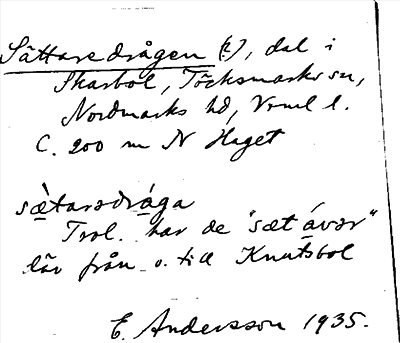 Sättaredrågen (?), dal i
Skarbol, Töcksmarks sn,
Nordmarks hd, Vrml l.
C. 200 m N Haget
sæ̀tarədrága
Trol. har de "sæt ávər"
där från o. till Knutsbol
E. Andersson 1935.